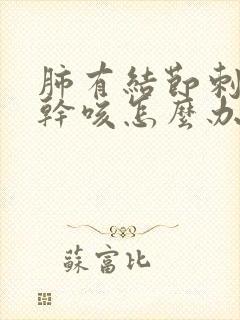 肺有結節刺
幹咳怎麼办
蘇富比